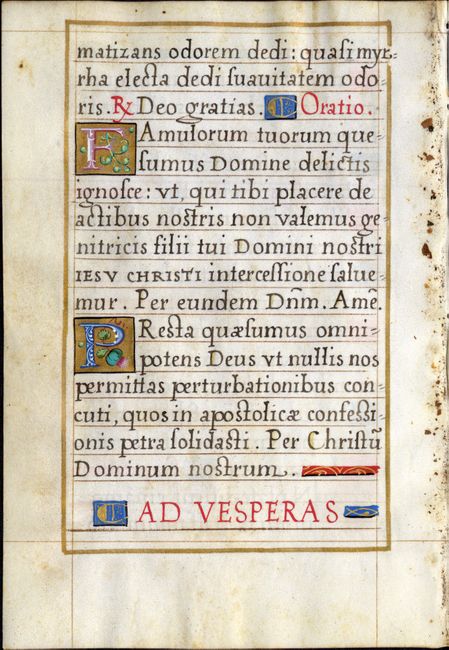 matizans odorem dedi: quasi myr-
rha electa dedi suauitatem odo-
ris. ℟ Deo gratias. Oratio.
FAmulorum tuorum que-
sumus Domine delictis
ignosce: vt, qui tibi placere de
actibus nostris non valemus ge-
nitricis filii tui Domini nostri
IESV CHRISTI intercessione salue-
mur. Per eundem Dñm. Amē.
PResta quæsumus omni-
potens Deus vt nullis nos
permittas perturbationibus con-
cuti, quos in apostolicæ confessi-
onis petra solidasti. Per Christū
Dominum nostrum.
AD VESPERAS